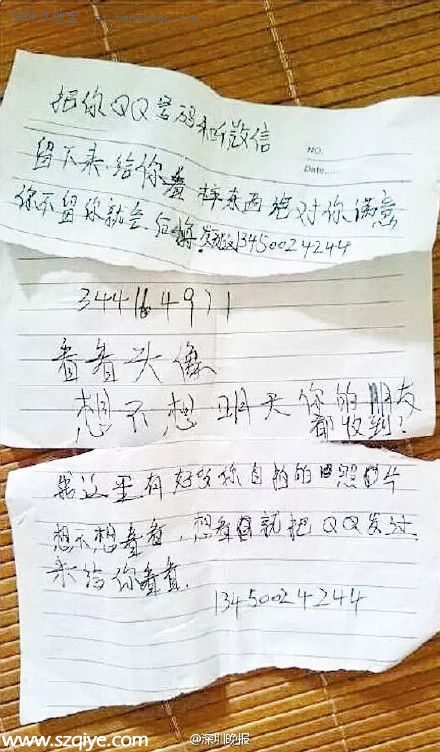 NO.
Date
把你QQ号码和微信
留下来给你看样东西绝对你满意
你不留你就会后悔.发到这13450024244
344164971
看看头像
想不想明天你的朋友
都收到?
我这里有好多你自拍的照片
想不想看看,想看就把QQ发过
来给你看看.
13450024244
www.szqiye.com
@深圳晚报